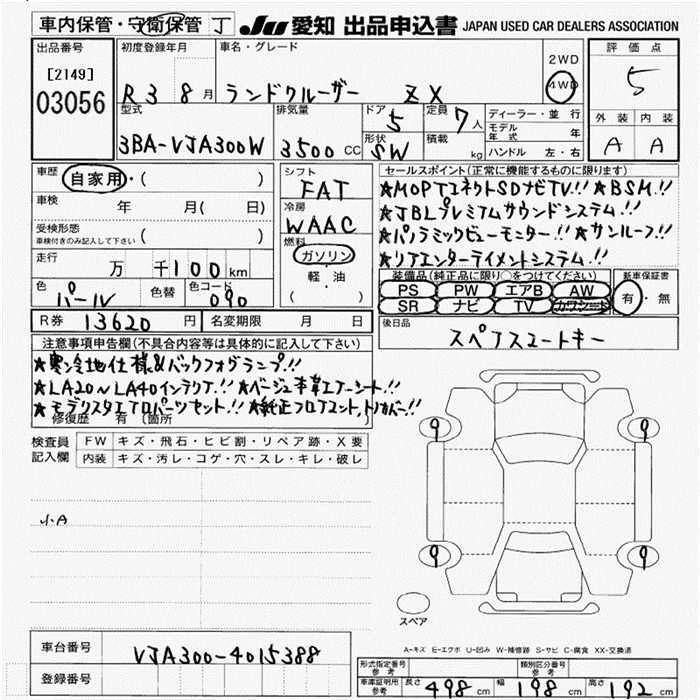 車内保管・守衛保管 丁 JU 愛知 出品申込書 JAPAN USED CAR DEALERS ASSOCIATION
出品番号 初度登録年月 車名・グレード 2WD 評価点
[2149] R3 8月 ランドクルーザー ZX 4WD 5
03056
型式 排気量 ドア 定員 ディーラー・並行 外装 内装
5 7人 モデル年式 年
3BA-VJA300W 3500cc 形状 SW 積載 kg ハンドル 左・右 A A
車歴 自家用・( ) シフト セールスポイント(正常に機能するものに限ります)
FAT ★MOPTコネクトSDナビTV!! ★BSM!!
車検 年 月( 日) 冷房 ★JBLプレミアムサウンドシステム!!
受検形態 WAAC ★パノラミックビューモニター!! ★サンルーフ!!
車検付きのみ記入して下さい ( ) 燃料 ★リアエンターテイメントシステム!!
走行 万 千100km ガソリン 装備品(純正品に限り○をつけてください) 新車保証書
軽・油 PS PW エアB AW 有・無
色 パール 色替 色コード 090 ( ) SR ナビ TV カワシート
R券 13620円 名変期限 月 日 後日品 スペアスマートキー
注意事項申告欄(不具合内容等は具体的に記入して下さい)
★寒冷地仕様&バックフォグランプ!!
★LA20~LA40インテリア!! ★ベージュ本革エアーシート!!
★モデリスタエアロパーツセット!! ★純正フロアマット,トリカバー!!
修復歴 有 〔箇所
検査員 FW キズ・飛石・ヒビ割・リペア跡・X要
記入欄 内装 キズ・汚レ・コゲ・穴・スレ・キレ・破レ
小A
9 9
9 9
スペア
A-キズ E-エクボ U-凹み W-補修跡 S-サビ C-腐食 XX-交換済
車台番号 VJA300-4015388
登録番号
形式指定番号 参考 類別区分番号 参考
車庫証明用 参考 長さ 498cm 幅 198cm 高さ 192cm